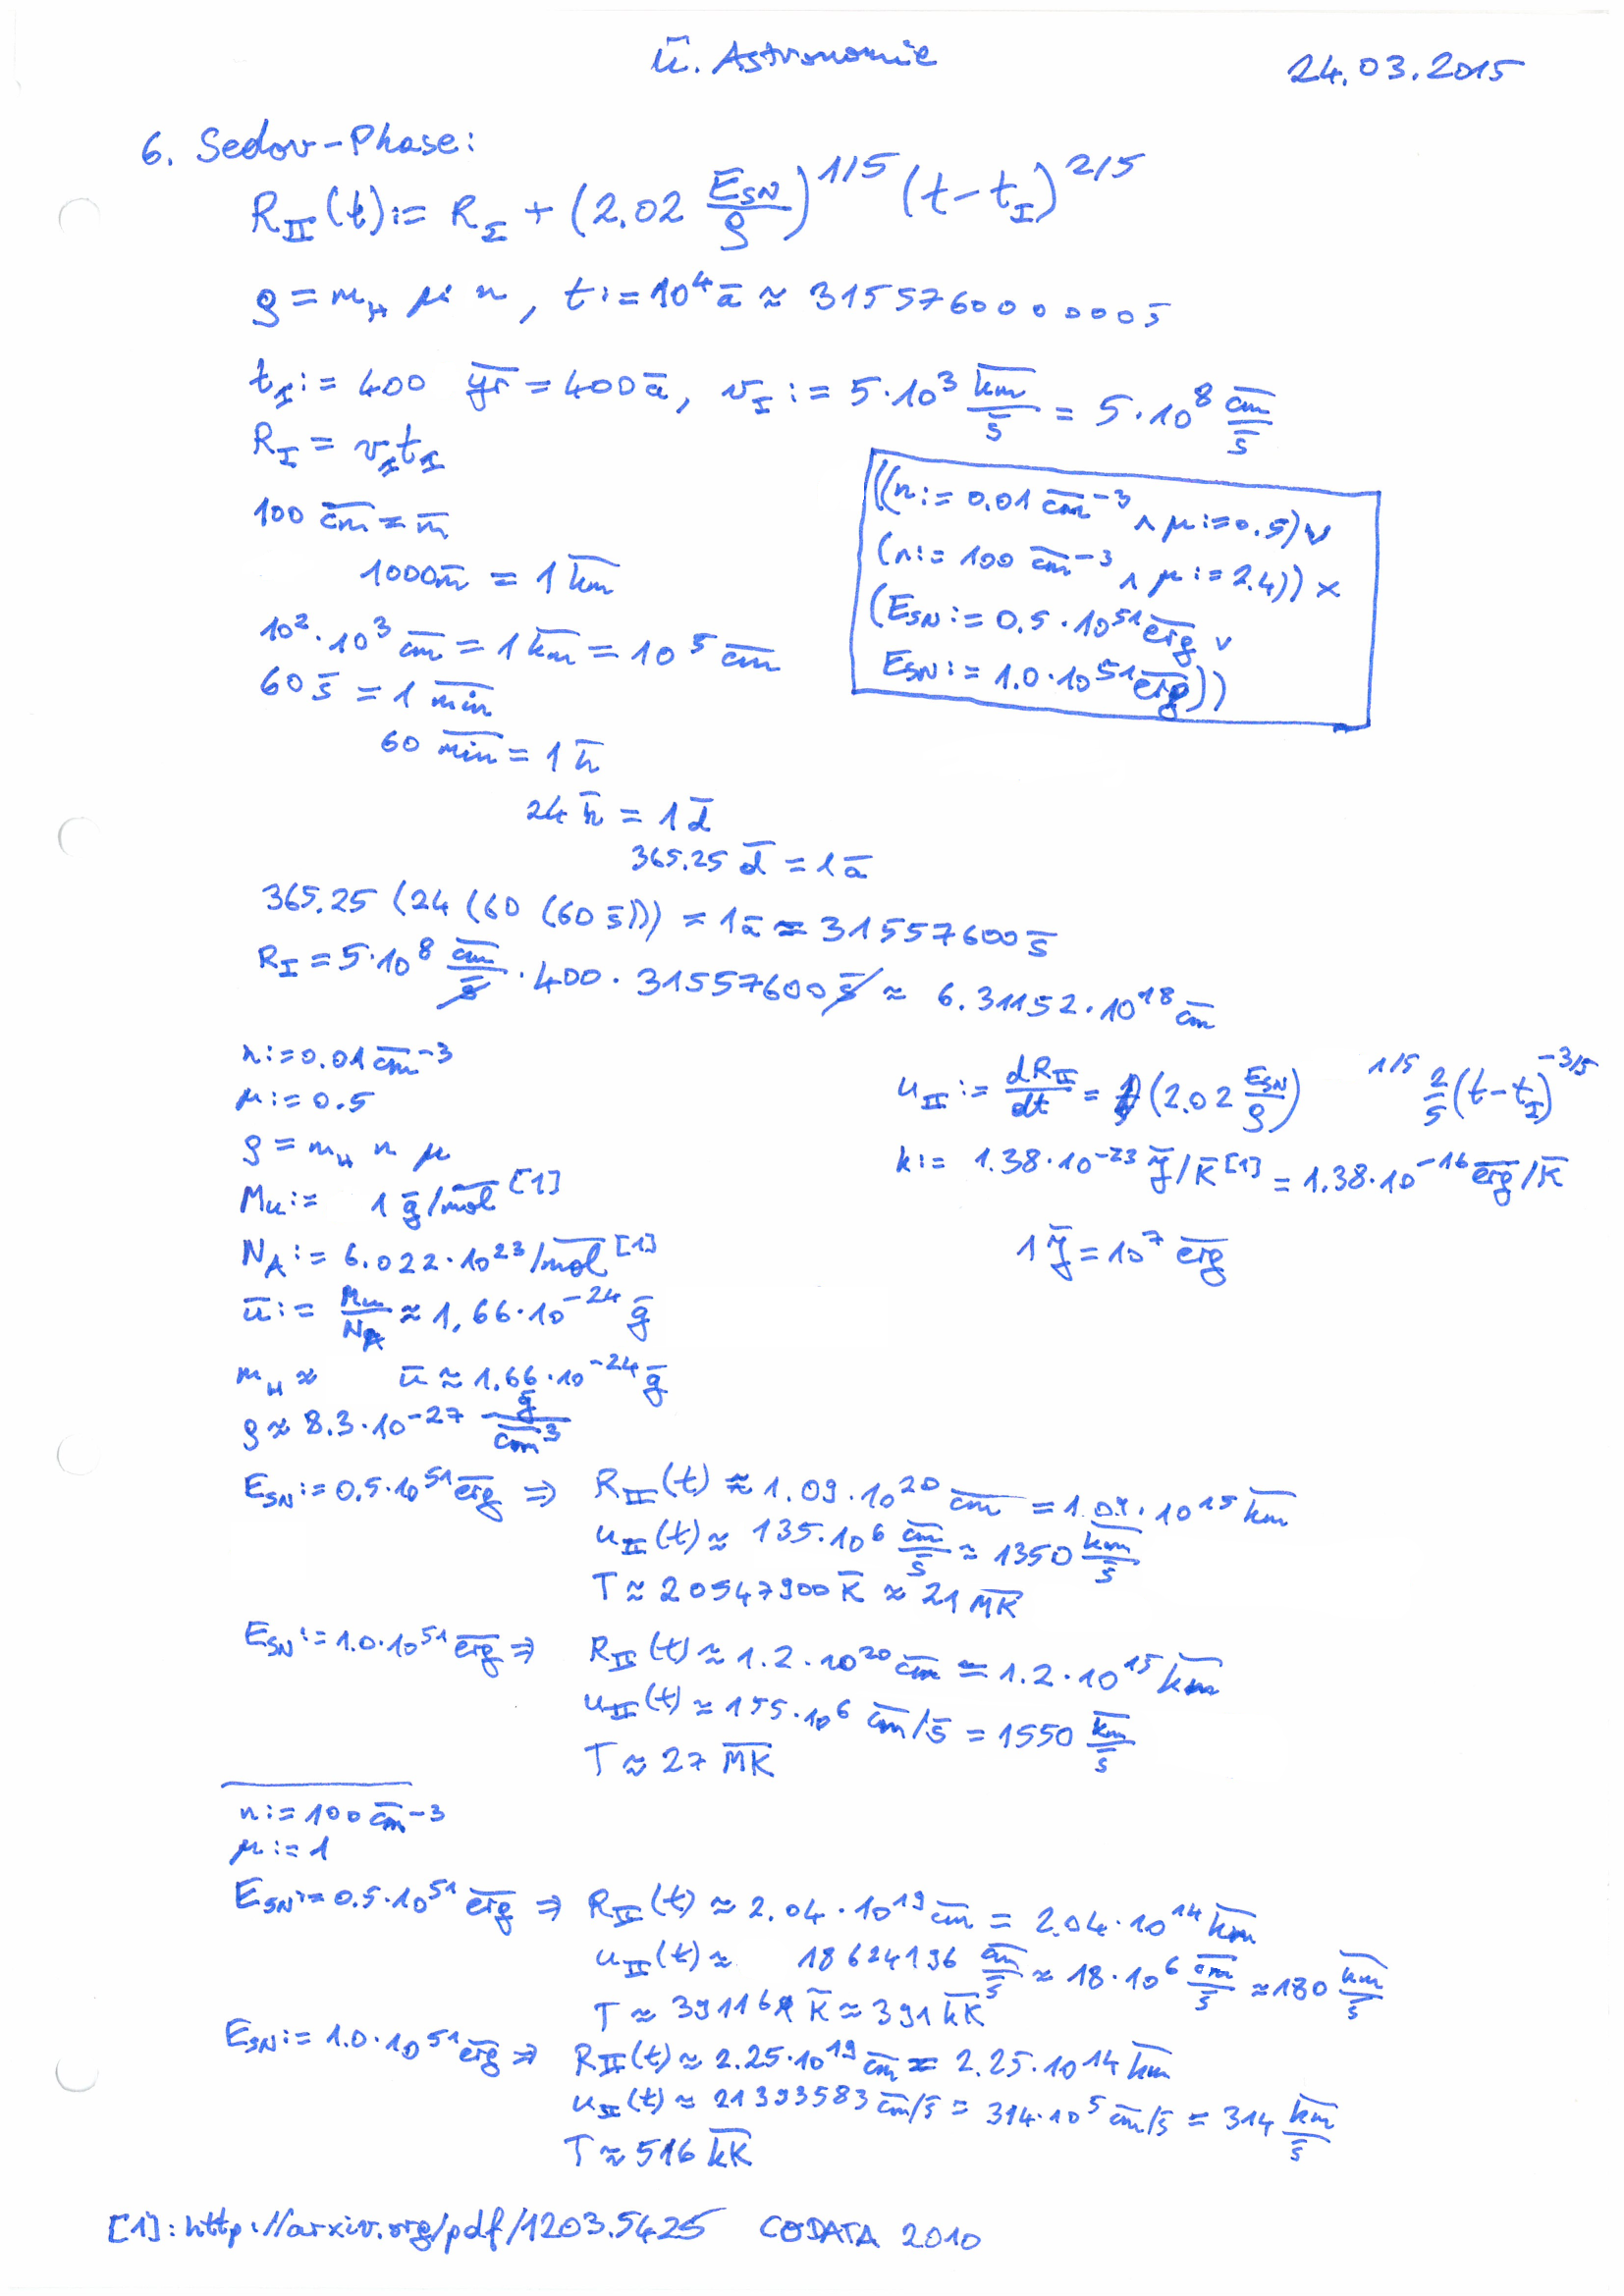 ū. Astronomie
24.03.2015
6. Sedov-Phase:
R_II(t) := R_I + (2.02 E_SN/ρ)^1/5 (t-t_I)^2/5
ρ = m_H μ n, t := 10^4 ā ≈ 315576000000 s̄
t_I := 400 y̅r̅ = 400 ā, v_I := 5·10^3 k̅m̅/s̄ = 5·10^8 c̅m̅/s̄
R_I = v_I t_I
100 c̅m̅ = m̄
1000 m̄ = 1 k̅m̅
10^2·10^3 c̅m̅ = 1 k̅m̅ = 10^5 c̅m̅
60 s̄ = 1 m̅i̅n̅
60 m̅i̅n̅ = 1 h̄
24 h̄ = 1 d̄
365.25 d̄ = 1 ā
((n := 0.01 c̅m̅^-3 ∧ μ := 0.5) ∨
(n := 100 c̅m̅^-3 ∧ μ := 2.4)) ×
(E_SN := 0.5·10^51 e̅r̅g̅ ∨
E_SN := 1.0·10^51 e̅r̅g̅))
365.25 (24 (60 (60 s̄))) = 1 ā = 31557600 s̄
R_I = 5·10^8 c̅m̅/s̄ · 400 · 31557600 s̄ ≈ 6.31152·10^18 c̅m̅
n := 0.01 c̅m̅^-3
μ := 0.5
ρ = m_H n μ
M_u := 1 ḡ/m̅o̅l̅ [1]
N_A := 6.022·10^23/m̅o̅l̅ [1]
ū := M_u/N_A ≈ 1,66·10^-24 ḡ
m_H ≈ ū ≈ 1.66·10^-24 ḡ
ρ ≈ 8.3·10^-27 ḡ/c̅m̅^3
u_II := dR_II/dt = (2.02 E_SN/ρ)^1/5 2/5 (t-t_I)^-3/5
k := 1.38·10^-23 J̄/K̄ [1] = 1.38·10^-16 e̅r̅g̅/K̄
1 J̄ = 10^7 e̅r̅g̅
E_SN := 0.5·10^51 e̅r̅g̅ ⇒ R_II(t) ≈ 1.09·10^20 c̅m̅ = 1.09·10^15 k̅m̅
u_II(t) ≈ 135·10^6 c̅m̅/s̄ ≈ 1350 k̅m̅/s̄
T ≈ 20547900 K̄ ≈ 21 M̅K̅
E_SN := 1.0·10^51 e̅r̅g̅ ⇒ R_II(t) ≈ 1.2·10^20 c̅m̅ = 1.2·10^15 k̅m̅
u_II(t) ≈ 155·10^6 c̅m̅/s̄ = 1550 k̅m̅/s̄
T ≈ 27 M̅K̅
n := 100 c̅m̅^-3
μ := 1
E_SN := 0.5·10^51 e̅r̅g̅ ⇒ R_II(t) ≈ 2.04·10^19 c̅m̅ = 2.04·10^14 k̅m̅
u_II(t) ≈ 18624196 c̅m̅/s̄ ≈ 18·10^6 c̅m̅/s̄ ≈ 180 k̅m̅/s̄
T ≈ 391161 K̄ ≈ 391 k̅K̅
E_SN := 1.0·10^51 e̅r̅g̅ ⇒ R_II(t) ≈ 2.25·10^19 c̅m̅ = 2.25·10^14 k̅m̅
u_II(t) ≈ 21393583 c̅m̅/s̄ = 314·10^5 c̅m̅/s̄ = 314 k̅m̅/s̄
T ≈ 516 k̅K̅
[1]: http://arxiv.org/pdf/1203.5425 CODATA 2010